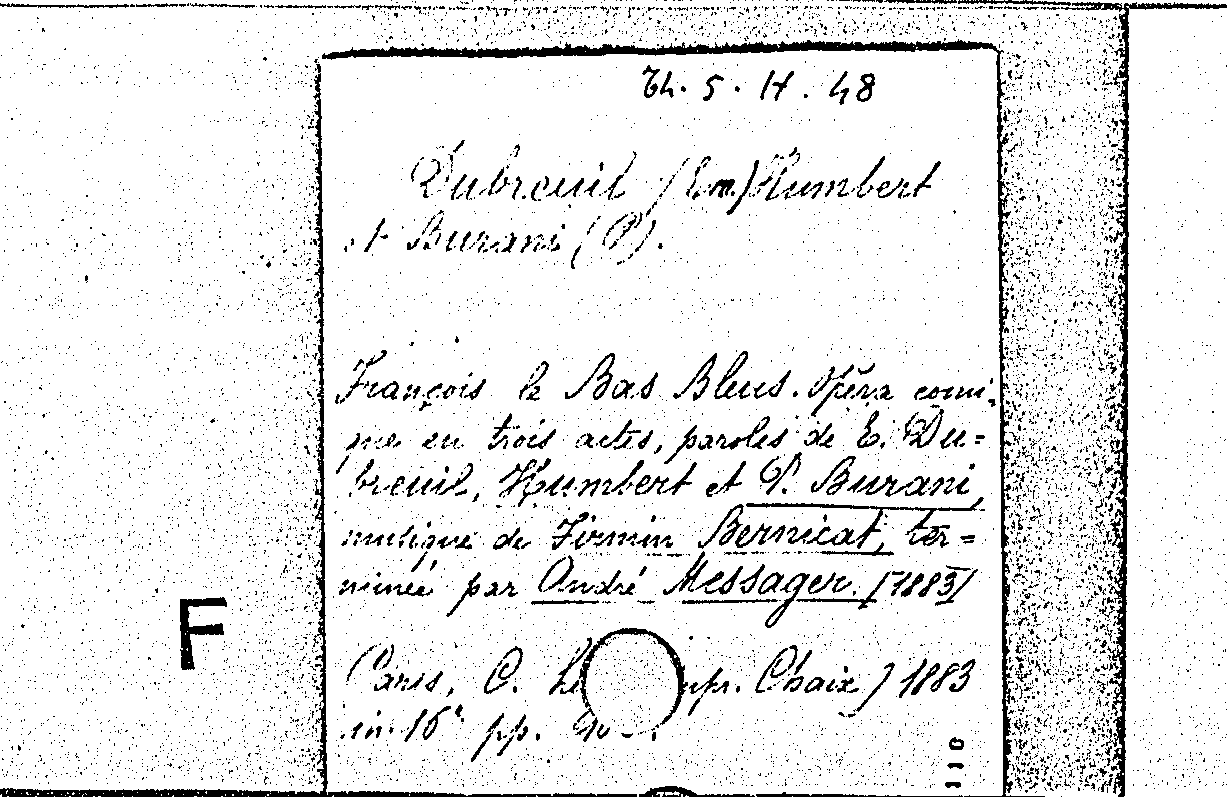 Th. 5. H. 48
Dubreuil (Em) Humbert
et Burani (P).
François le Bas Bleus. Opéra comi-
que en trois actes, paroles de E. Du=
breuil, Humbert et P. Burani,
musique de Firmin Bernicat, ter=
minée par André Messager. [1883]
F
Paris, C. impr. Chaix) 1883
in-16° pp.
110